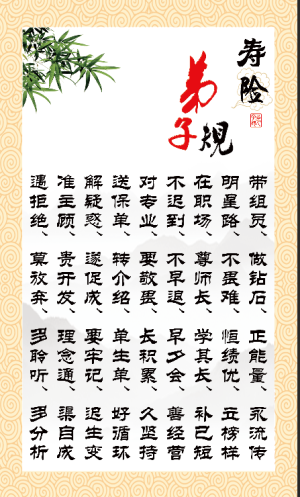 寿险
弟子規
带组员、做钻石、正能量、永流传
明星路、不畏难、恒绩优、立榜样
在职场、尊师长、学其长、补己短
不迟到、不早退、早夕会、善经营
对专业、要敬畏、长积累、久坚持
送保单、转介绍、单生单、好循环
解疑惑、速促成、要牢记、迟生变
准主顾、贵开发、理念通、渠自成
遇拒绝、莫放弃、多聆听、多分析